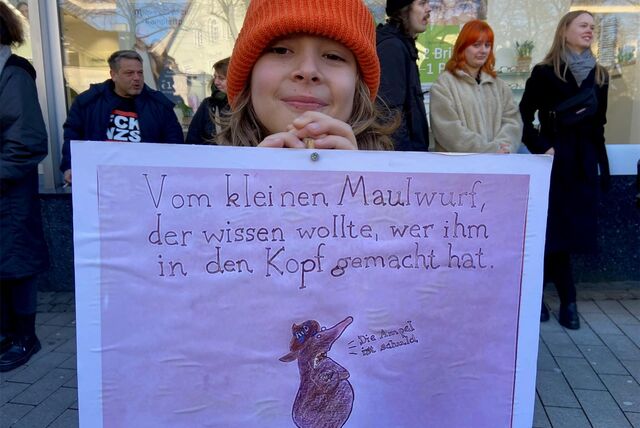 Vom kleinen Maulwurf,
der wissen wollte, wer ihm
in den Kopf gemacht hat.
Die Ampel
ist schuld.
FCK
NZS